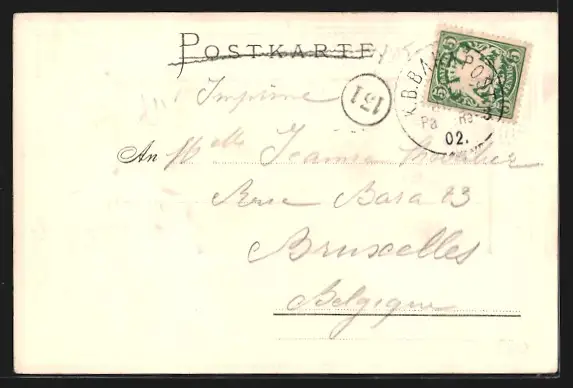 POSTKARTE
Imprimé
151
K.B.BA
02.
5 5
An Mlle Jeanne
Rue Bara 23
Bruxelles
Belgique